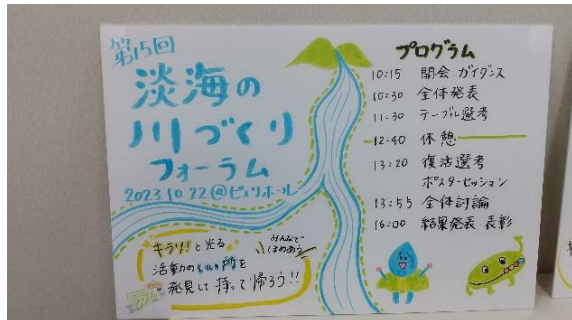 第15回
淡海の
川づくり
フォーラム
2023.10.22@ピアザホール
キラリ!と光る
みんなで
ほめあう
活動のいい所を
発見して持って帰ろう!!
プログラム
10:15 開会 ガイダンス
10:30 全体発表
11:30 テーブル選考
12:40 休憩
13:20 復活選考
ポスターセッション
13:55 全体討論
16:00 結果発表 表彰